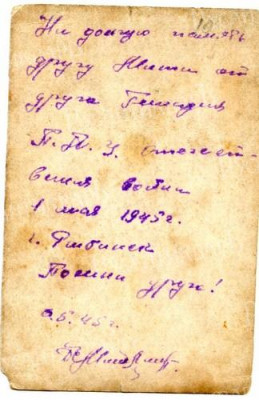 На долгую память
другу от
друга Геннадия
отечест-
венная война
1 мая 1945 г.
г. Рыбинск
Помни друг!
5. 45 г.